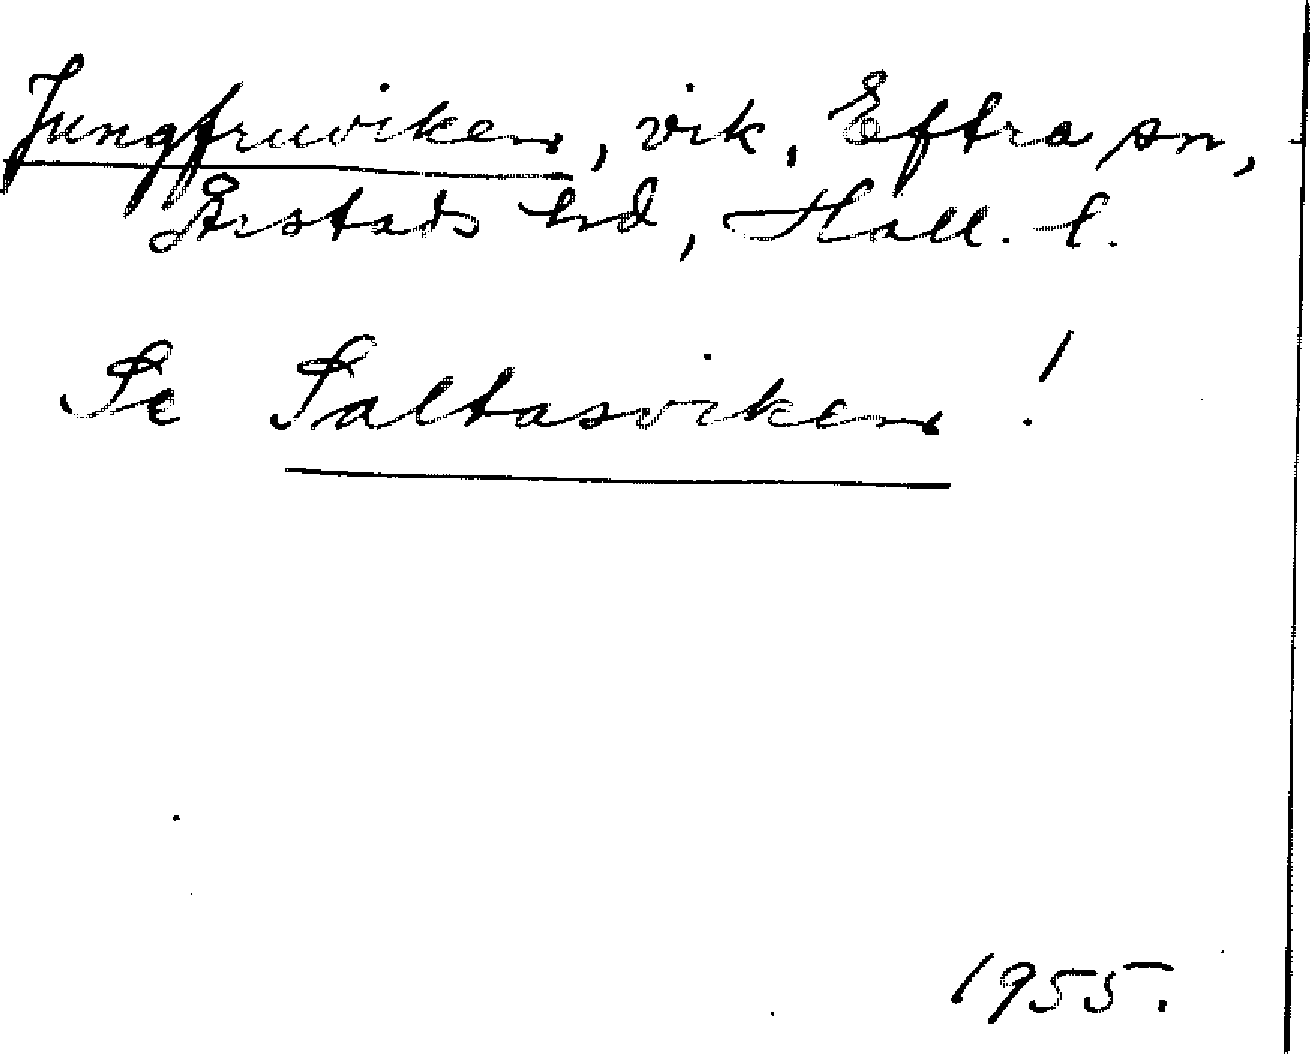 Jungfruviken, vik, Eftra sn,
Årstads hd, Hall. l.
Se Saltasviken!
1955.